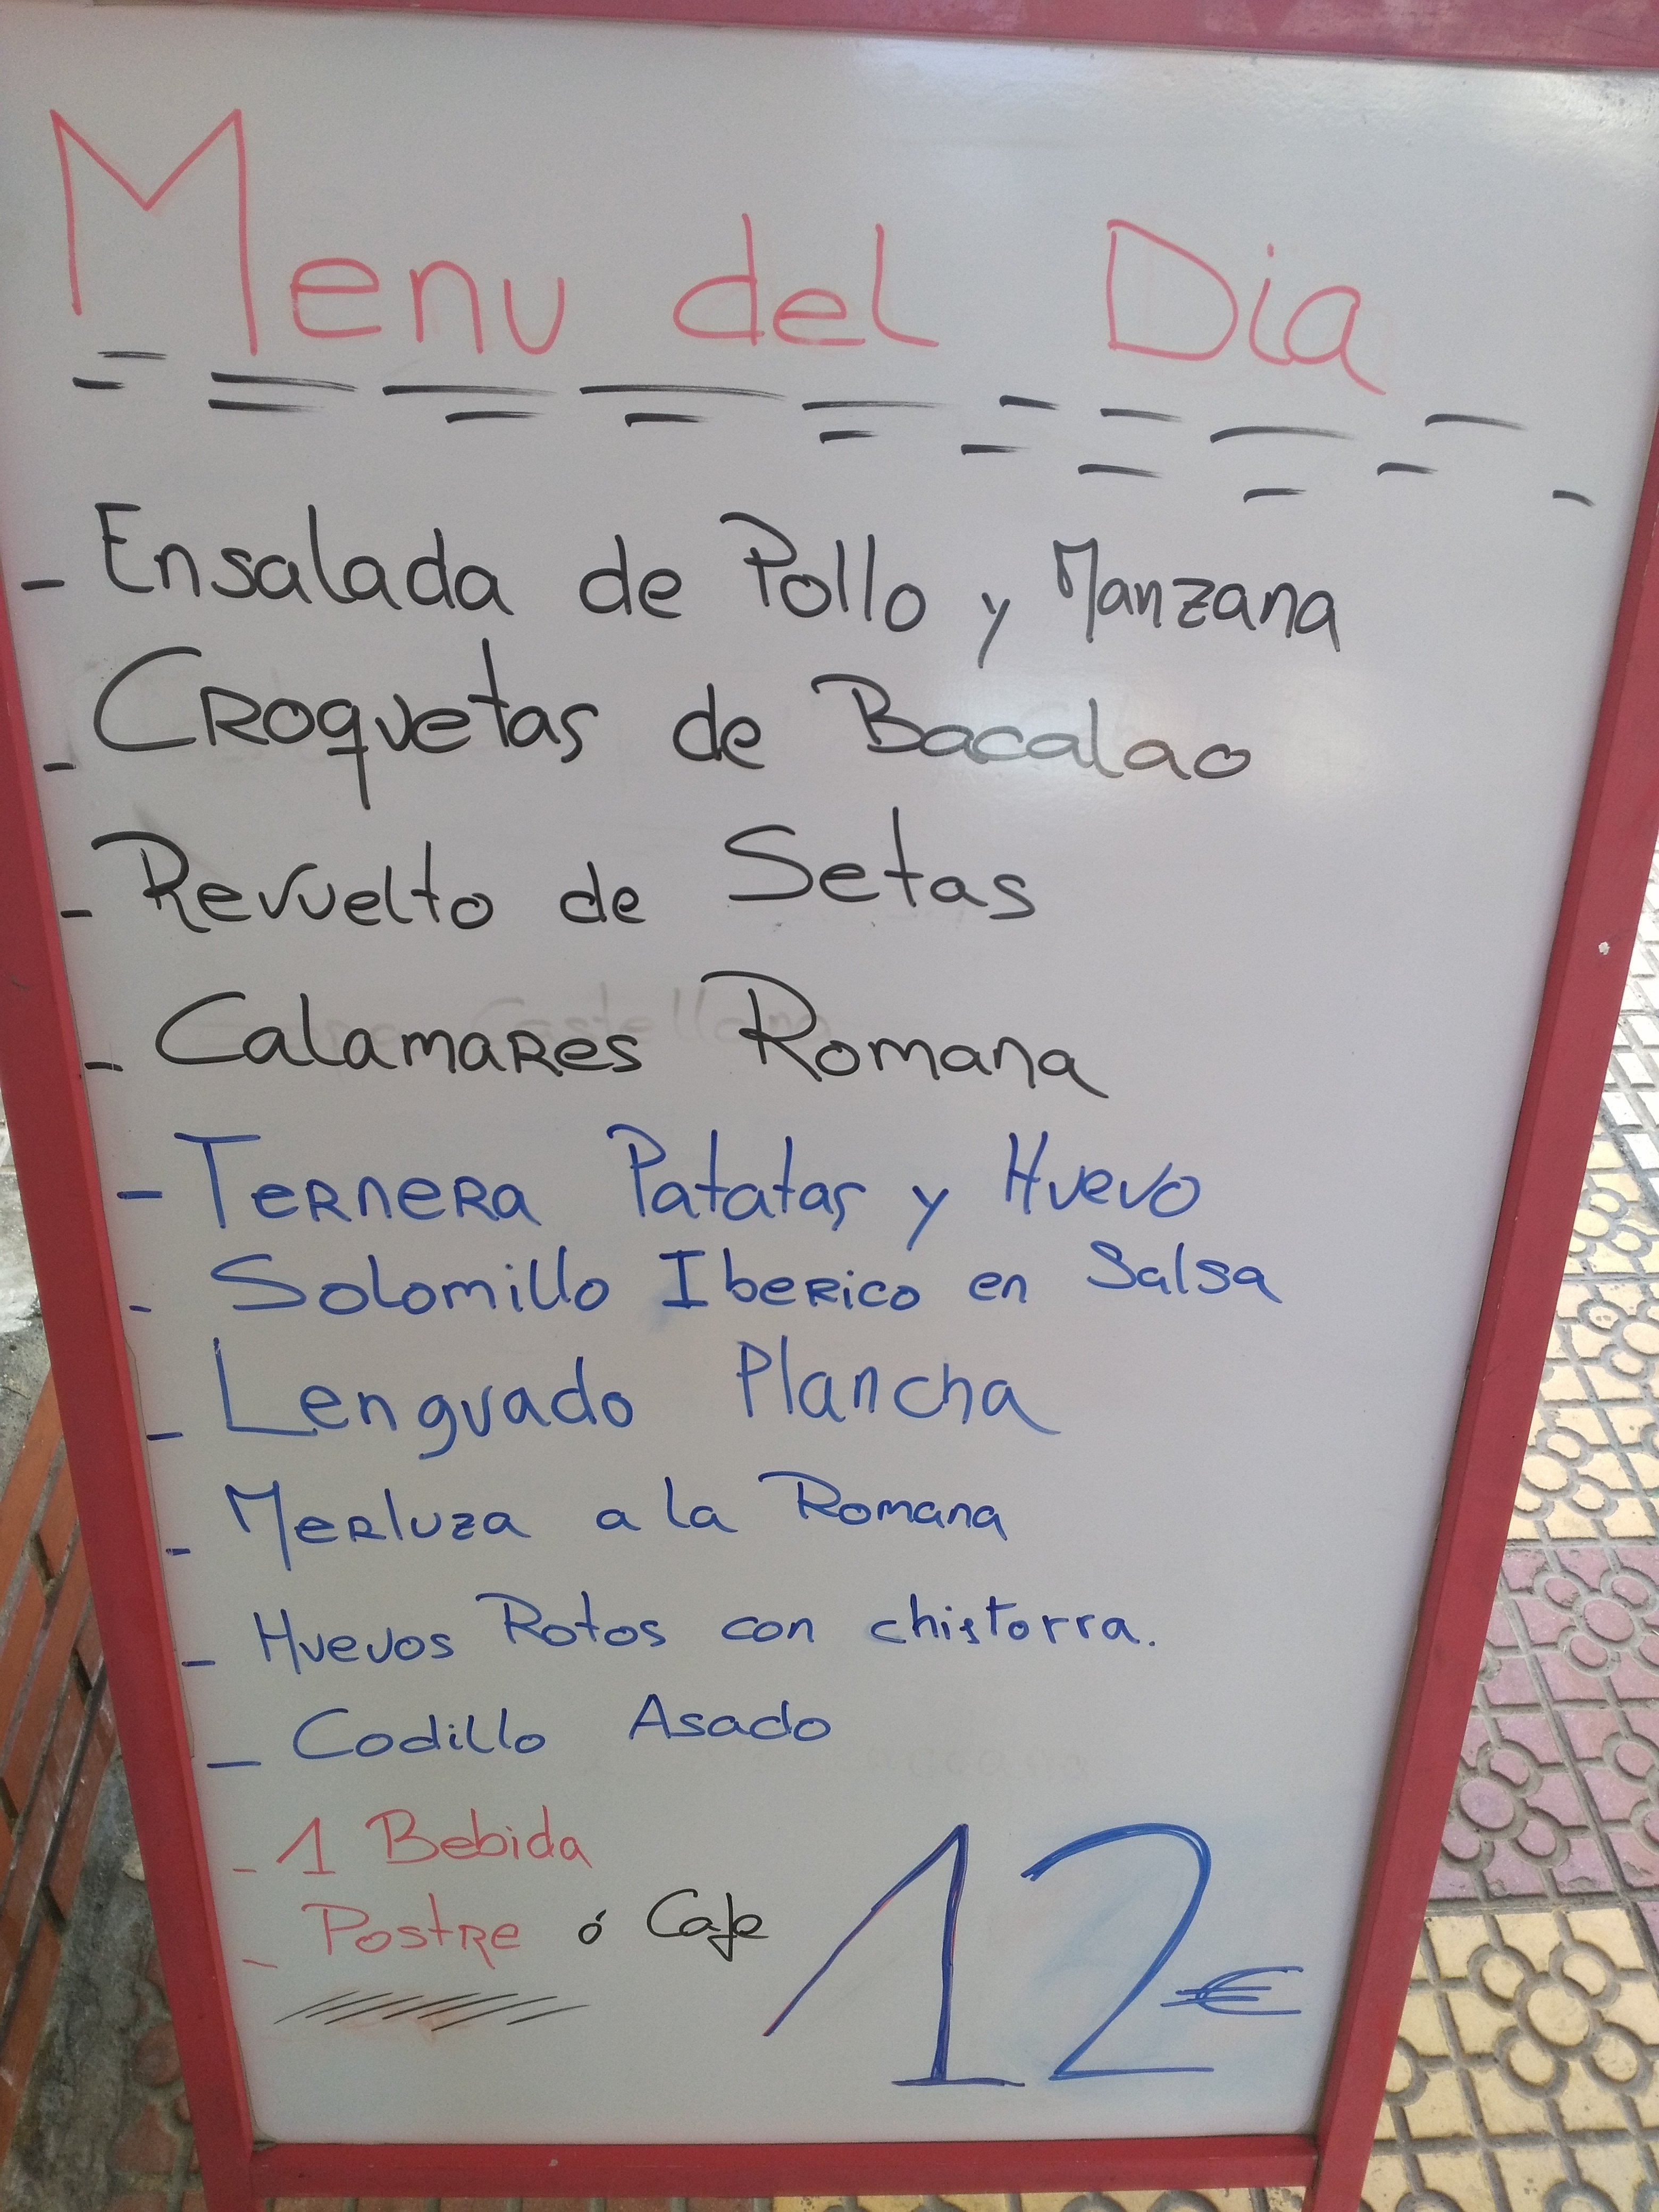 Menu del Dia
- Ensalada de Pollo y Manzana
- Croquetas de Bacalao
- Revuelto de Setas
- Calamares Romana
- Ternera Patatas y Huevo
- Solomillo Iberico en Salsa
- Lenguado Plancha
- Merluza a la Romana
- Huevos Rotos con chistorra.
- Codillo Asado
- 1 Bebida
- Postre ó Cafe
12€